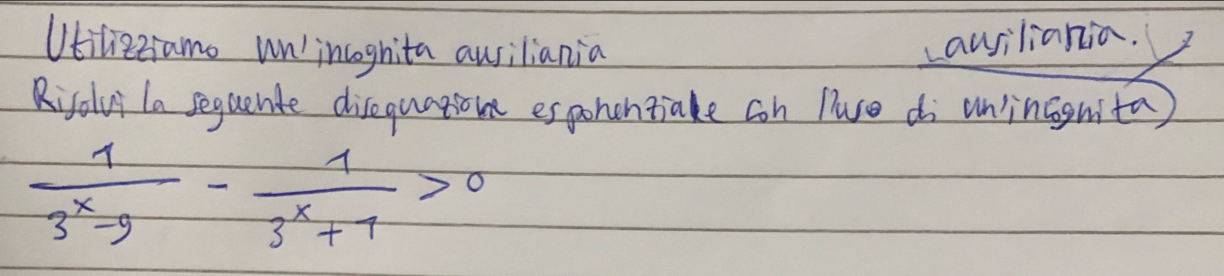 Utilizziamo un'incognita ausiliaria
Risolvi la seguente disequazione esponenziale con l'uso di un'incognita
ausiliaria.
1/(3^x-9) - 1/(3^x+1) > 0